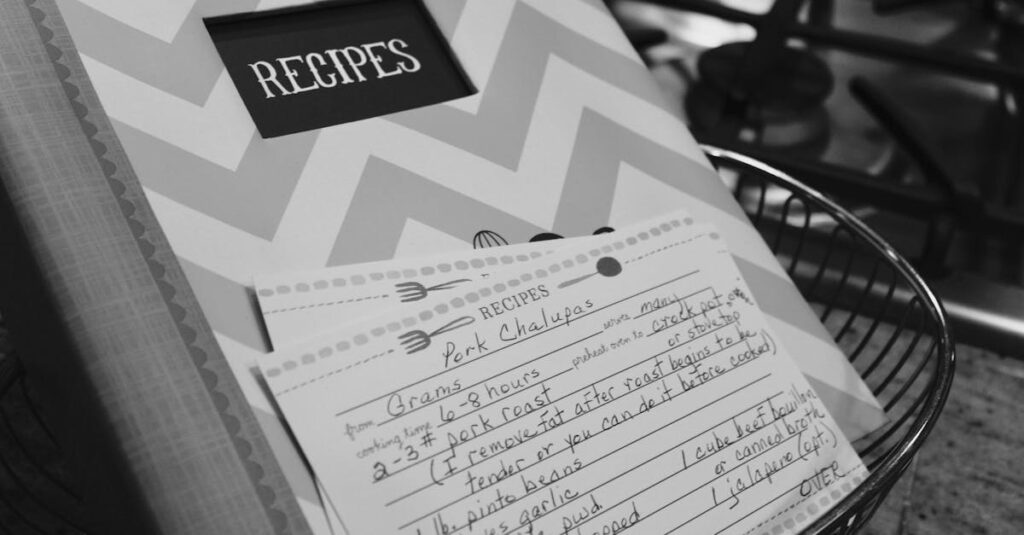 RECIPES
RECIPES
Pork Chalupas
from Grams serves many
cooking time 6-8 hours preheat oven to crock pot
or stove top
2-3 # pork roast
(I remove fat after roast begins to be
tender or you can do it before cooked)
lb. pinto beans
garlic 1 cube beef bouillon
pwd. or canned broth
1 jalapeno (opt.)
OVER